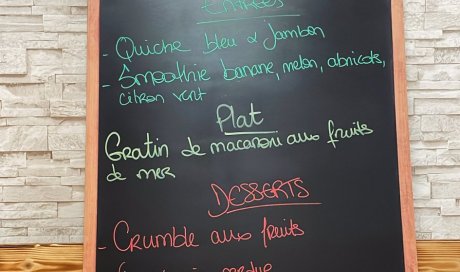 ENTRÉES
- Quiche bleu & Jambon
- Smoothie banane, melon, abricots,
citron vert
Plat
Gratin de macaroni aux fruits
de mer
DESSERTS
- Crumble aux fruits
perdue